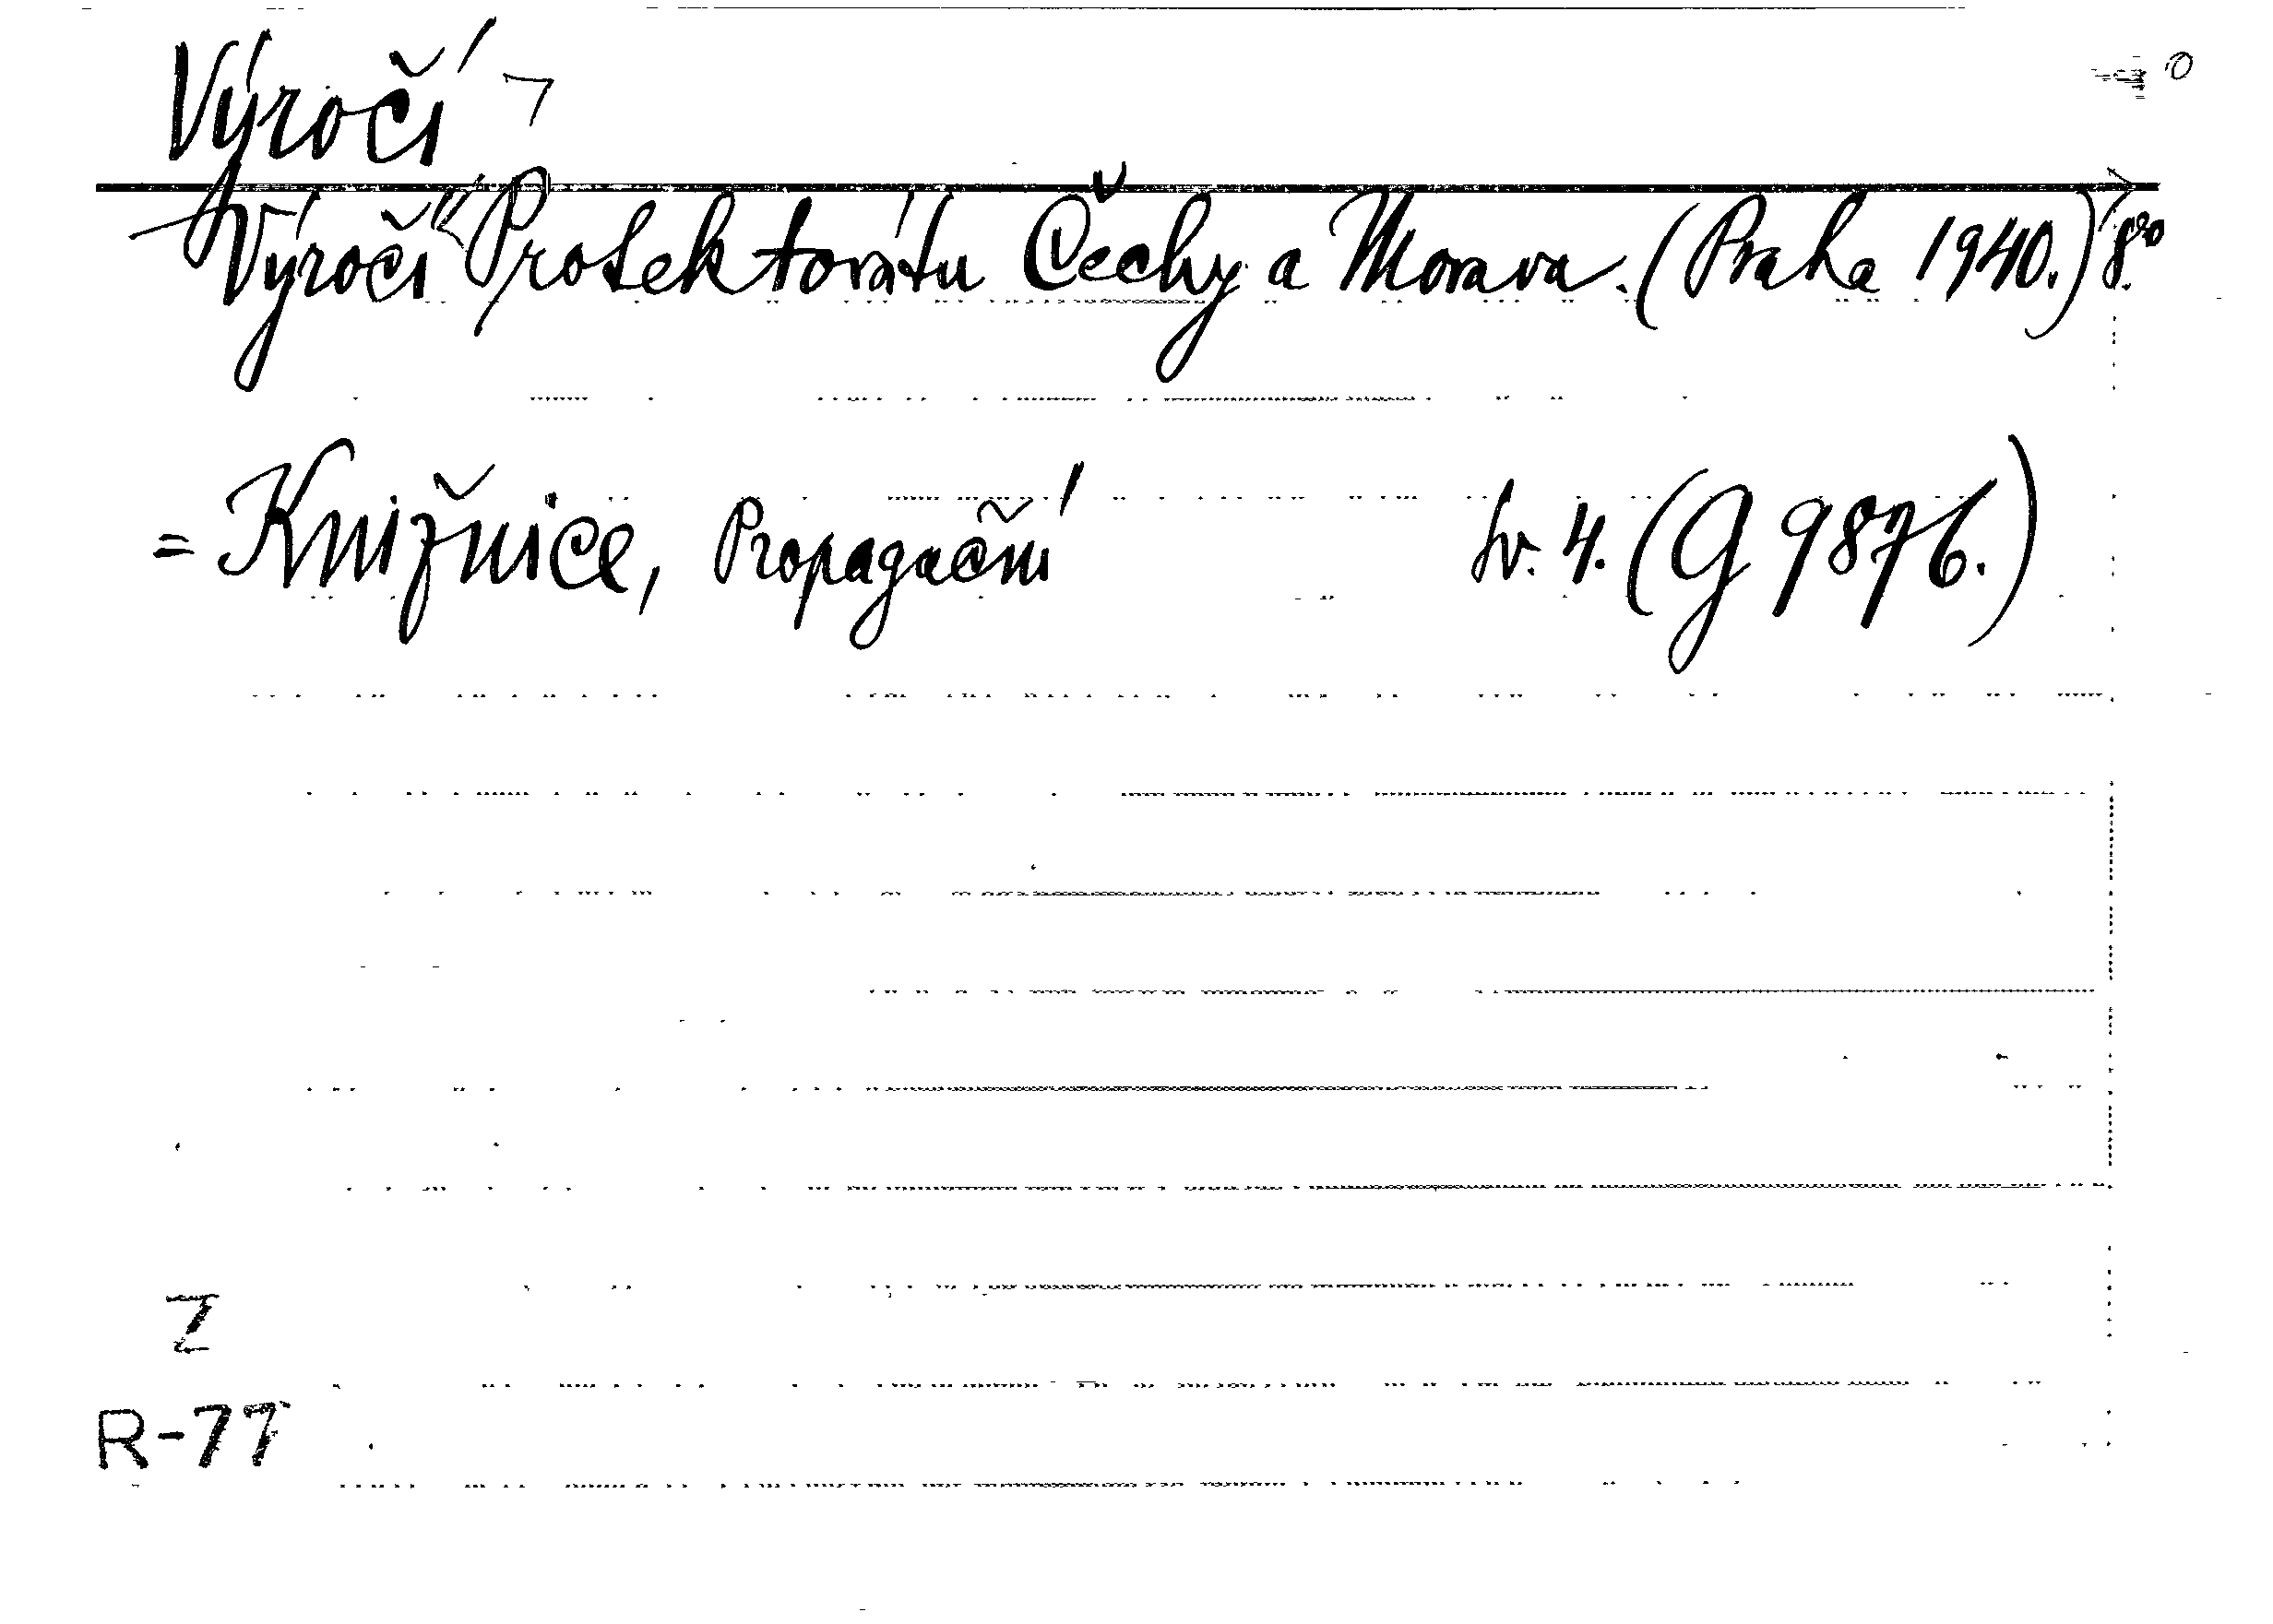 Výročí
Výročí Protektorátu Čechy a Morava. (Praha 1940.) 8°.
= Knižnice, Propagační sv. 4. (G 9876.)
Z
R-77